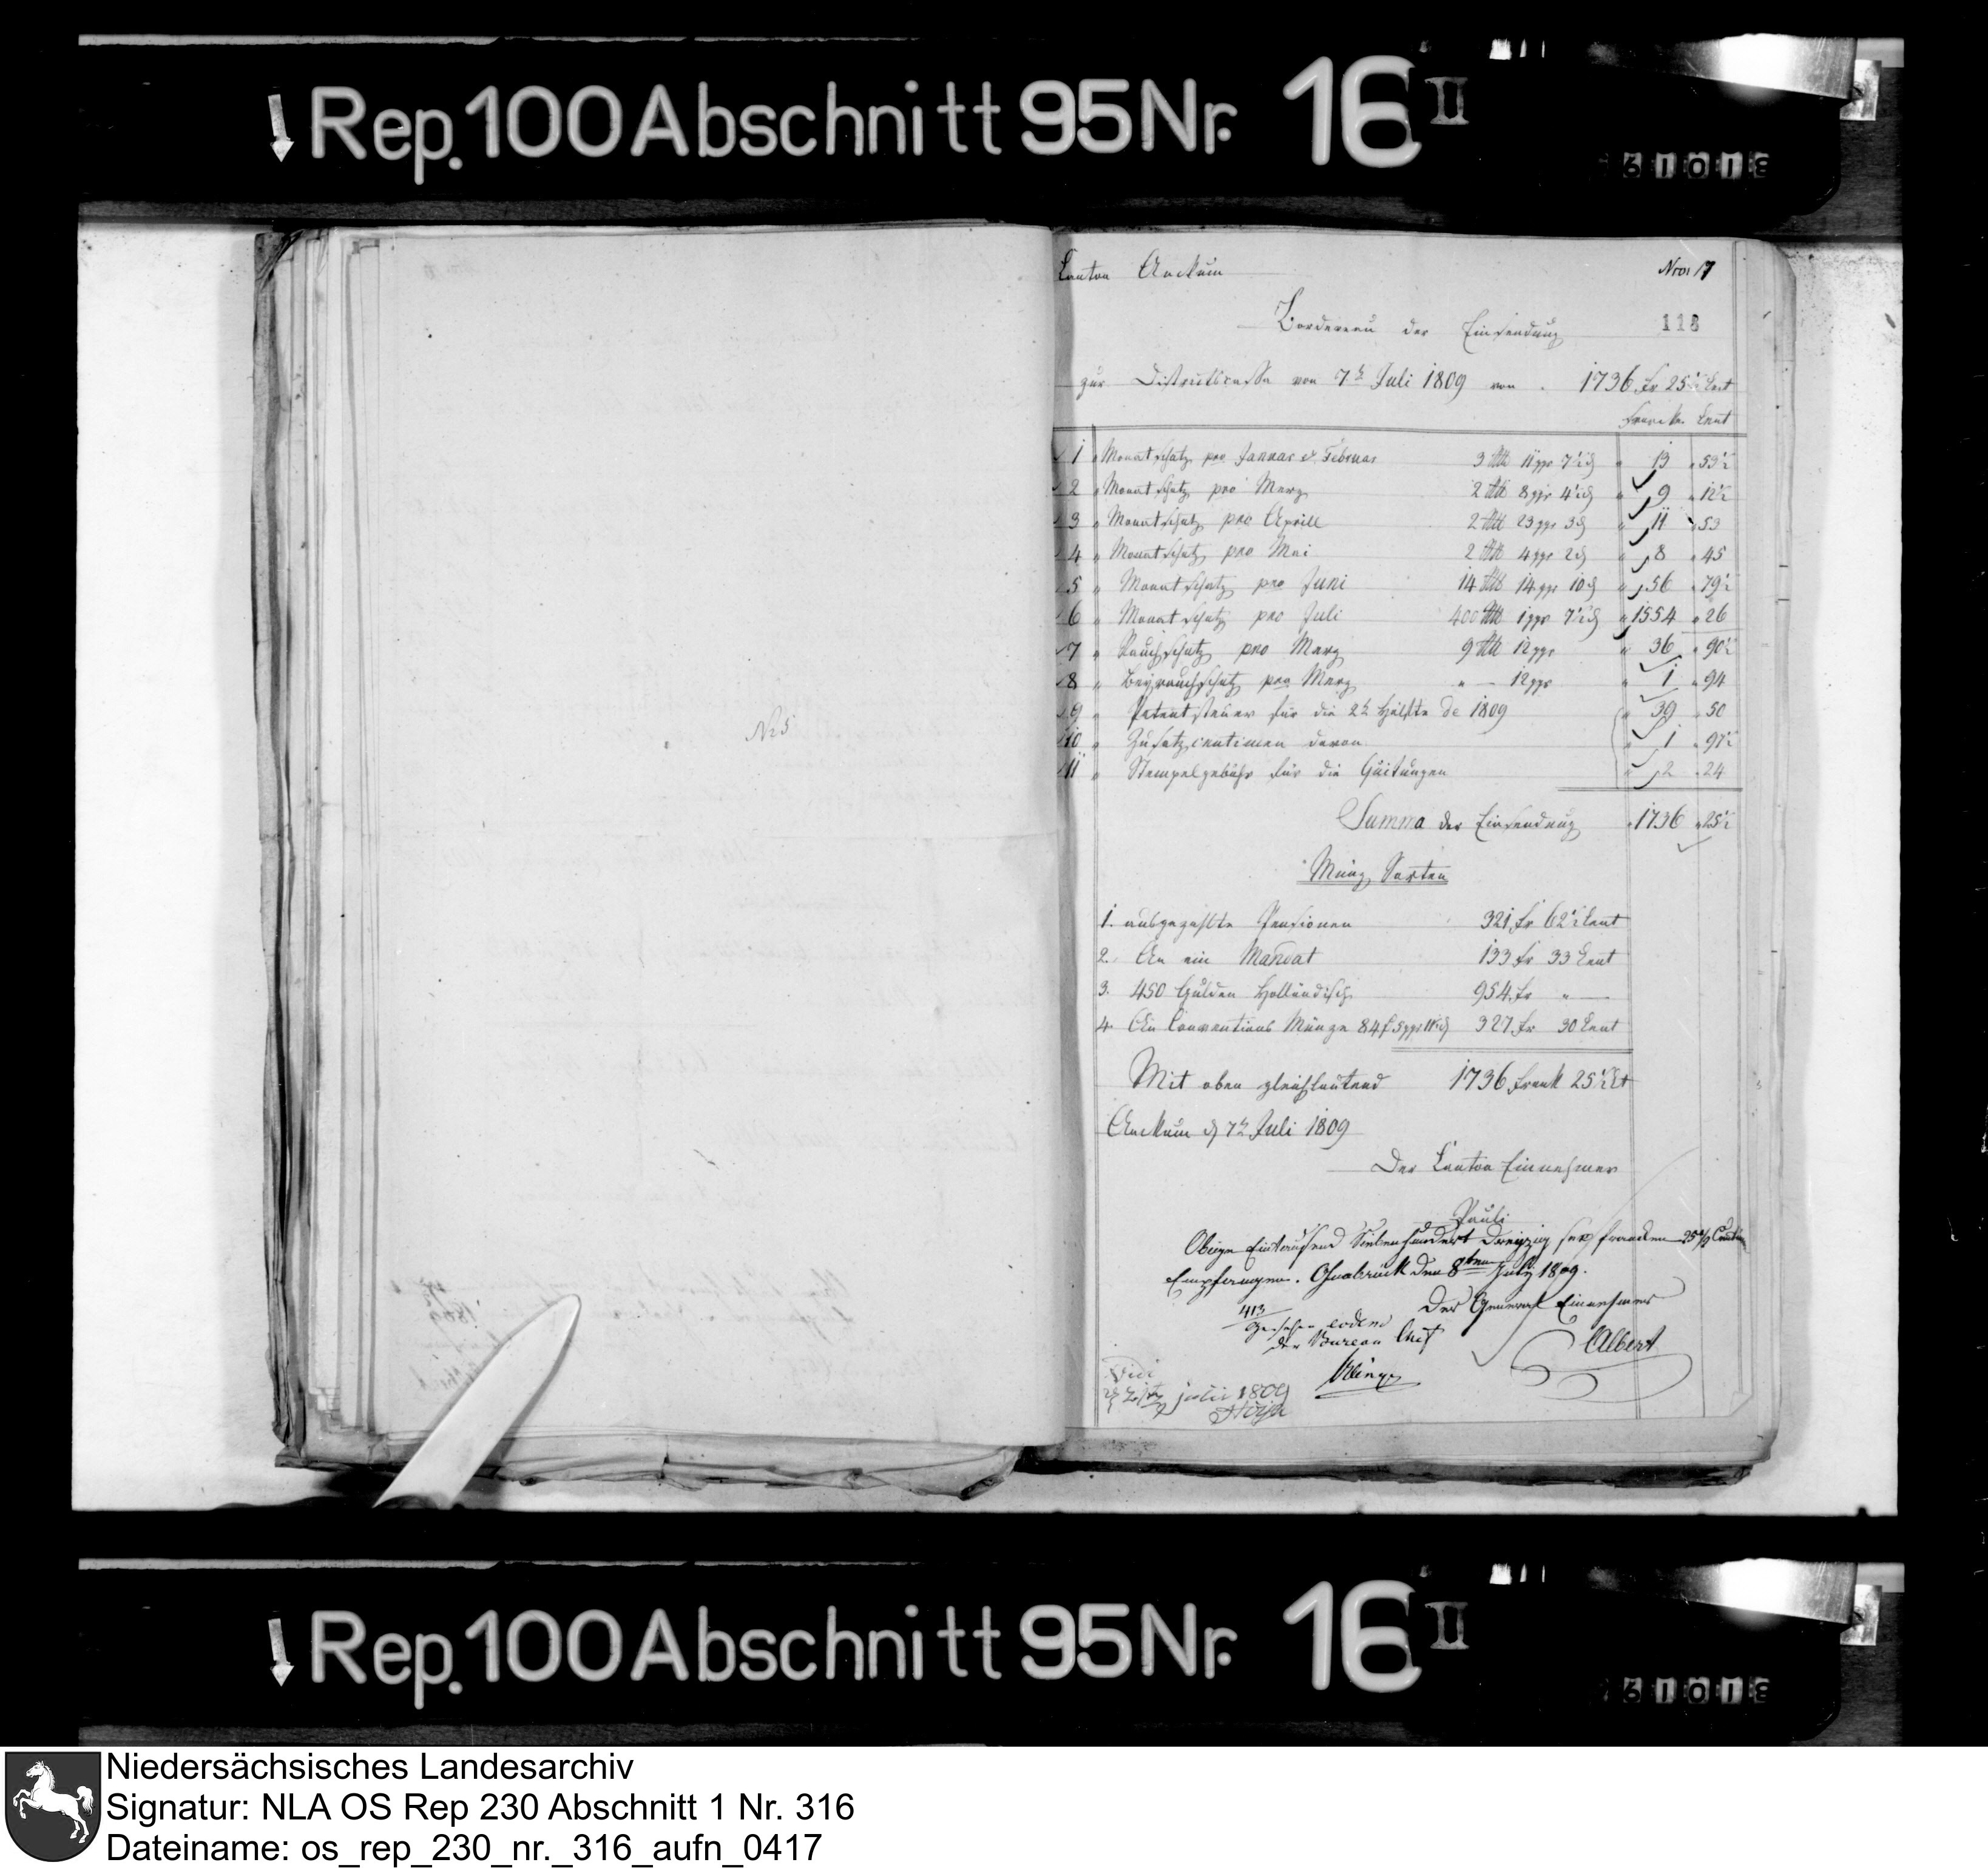 Rep. 100 Abschnitt 95 Nr. 16 II
61018
Canton Anckum
Nro: 17
Bordereau der Einsendung
118
zur Districtscasse von 7t Juli 1809 von 1736 Fr 25½ Cent
Francks Cent
1 Monatschatz pro Januar et Februar 3 Rth 11 ggr 7½ d 13 53½
2 Monatschatz pro Merz 2 Rth 8 ggr 4½ d 9 12½
3 Monatschatz pro Aprill 2 Rth 23 ggr 3 d 11 53
4 Monatschatz pro Mai 2 Rth 4 ggr 2 d 8 45
5 Monatschatz pro Juni 14 Rth 14 ggr 10 d 56 79½
6 Monatschatz pro Juli 400 Rth 1 ggr 7½ d 1554 26
7 Rauchschatz pro Merz 9 Rth 12 ggr 36 90½
8 Beyrauchschatz pro Merz " — 12 ggr 1 94
9 Patentsteuer für die 2t Hälfte de 1809 39 50
10 Zusatzcentimen davon 1 97½
11 Stempelgebühr für die Quitungen 2 24
Summa der Einsendung 1736 25½
Münz Sorten
1. ausgezahlte Pensionen 321 Fr 62½ Cent
2. An ein Mandat 133 Fr 33 Cent
3. 450 Gulden Holländisch 954 Fr " —
4. An Conventions Münze 84 f 5 ggr 11½ d 327 Fr 30 Cent
Mit oben gleichlautend 1736 Frank 25½ Ct
Anckum d 7t Juli 1809
Der Canton Einnehmer
Pauli
Obige Eintausend Siebenhundert dreyzig sex francken 25½ Centim
Empfangen. Osnabrück den 8ten July 1809.
Der General Einnehmer
Albert
413
Gesehen eodem
der Bureau Chef
Vidi
julii 1809
No 5
Rep. 100 Abschnitt 95 Nr. 16 II
61018
Niedersächsisches Landesarchiv
Signatur: NLA OS Rep 230 Abschnitt 1 Nr. 316
Dateiname: os_rep_230_nr._316_aufn_0417